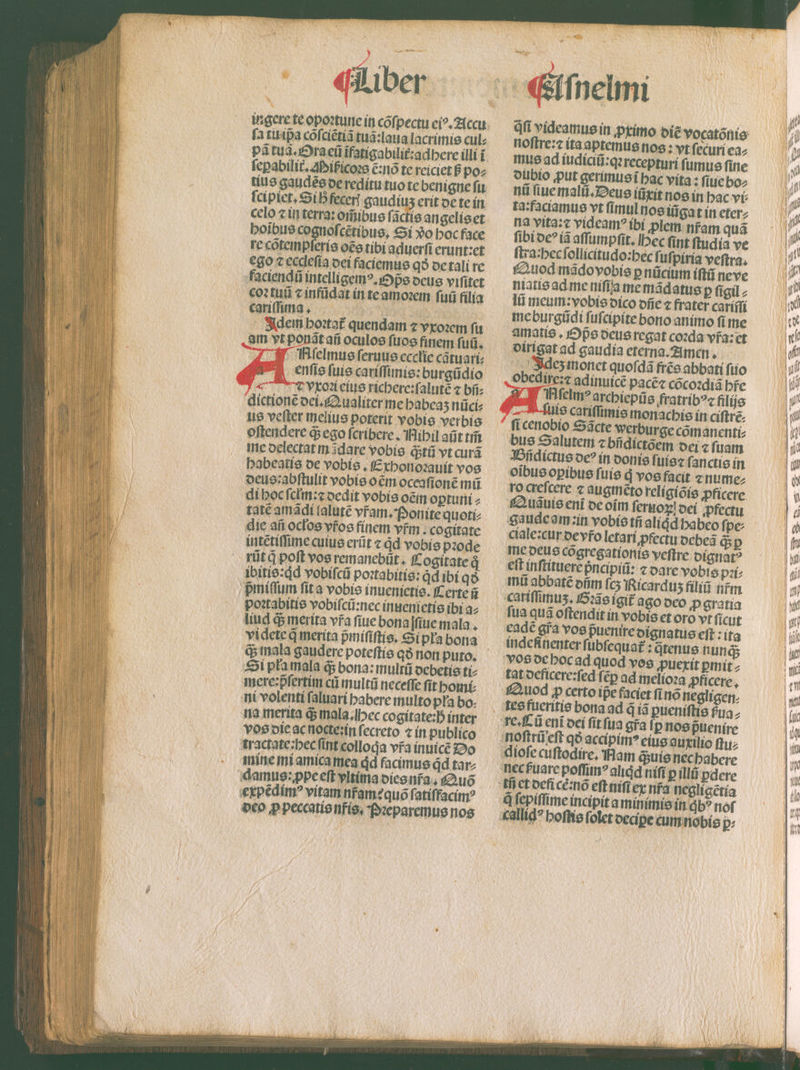 ¶Liber ¶Asnelmi
ingere te oportune in cōspectu eiꝰ. Accu⸗
sa tu ip̄a cōsciētiā tuā: laua lacrimis cul⸗
pā tuā. Ora eū īfatigabilit̄: adhere illi ī
sepabilit̄. Mīsicors ē: nō te reiciet s̄ po⸗
tius gaudēs de reditu tuo te benigne su
scipiet. Si h̄ feceꝝ gaudiuʒ erit de te in
celo ⁊ in terra: om̄ibus sāctis angelis et
hoibus cognoscētibus. Si v̄o hoc face
re cōtempseris oēs tibi aduersi erunt: et
ego ⁊ ecclesia dei faciemus qđ de tali re
faciendū intelligemꝰ. Op̄s deus visitet
cor tuū ⁊ infūdat in te amorem suū filia
carissima.
Idem hortat̄ quendam ⁊ vxorem su
am vt ponāt añ oculos suos finem suū.
Anselmus seruus ecclīe cātuari⸗
ensis suis carissimis: burgūdio
⁊ vxori eius richere: salutē ⁊ bn̄⸗
dictionē dei. Qualiter me habeaʒ nūci⸗
us vester melius poterit vobis verbis
ostendere q̄ʒ ego scribere. Nihil aūt tm̄
me delectat mādare vobis q̄ʒtū vt curā
habeatis de vobis. Exhonorauit vos
deus: abstulit vobis oēm occasionē mū
di hoc sclm̄: ⁊ dedit vobis oēm oꝑtuni⸗
tatē amādi salutē vr̄am. Ponite quoti⸗
die añ ocl̄os vr̄os finem vr̄m. cogitate
intētissime cuius erūt ⁊ qđ vobis prode
rūt q̄ post vos remanebūt. Cogitate q̄
ibitis: qđ vobiscū portabitis: qđ ibi qđ
p̄missum sit a vobis inuenietis. Certe ñ
portabitis vobiscū: nec inuenietis ibi a⸗
liud q̄ʒ merita vr̄a siue bona siue mala.
videte q̄ merita p̄misistis. Si pl̄a bona
q̄ʒ mala gaudere potestis qđ non puto.
Si pl̄a mala q̄ʒ bona: multū debetis ti⸗
mere: p̄sertim cū multū necesse sit homi⸗
ni volenti saluari habere multo pl̄a bo⸗
na merita q̄ʒ mala. Hec cogitate: h̄ inter
vos die ac nocte: in secreto ⁊ in publico
tractate: hec sint colloq̄a vr̄a inuicē Do
mine mi amica mea qđ facimus qđ tar⸗
damus: ꝓpe est vltima dies nr̄a. Quō
expēdimꝰ vitam nr̄am? quō satisfacimꝰ
deo ꝓ peccatis nr̄is. Preparemus nos
q̄si videamus in ꝓximo diē vocatōnis
nostre: ⁊ ita aptemus nos: vt securi ea⸗
mus ad iudiciū: qꝛ recepturi sumus sine
dubio ꝓut gerimus ī hac vita: siue bo⸗
nū siue malū. Deus iūxit nos in hac vi⸗
ta: faciamus vt simul nos iūgat in eter⸗
na vita: ⁊ videamꝰ ibi ꝓlem nr̄am quā
sibi deꝰ iā assumpsit. Hec sint studia ve
stra: hec sollicitudo: hec suspiria vestra.
Quod mādo vobis ꝑ nūcium istū ne ve
niatis ad me nisi ꝑa me mādatus ꝑ sigil⸗
lū meum: vobis dico dn̄e ⁊ frater carissi
me burgūdi suscipite bono animo si me
amatis. Op̄s deus regat corda vr̄a: et
dirigat ad gaudia eterna. Amen.
Ideʒ monet quosdā fr̄es abbati suo
obedire: ⁊ adinuicē pacē ⁊ cōcordiā hr̄e
Anselmꝰ archiep̄us fratribꝰ ⁊ filijs
suis carissimis monachis in cistrē⸗
si cenobio Sācte werburge cōmanenti⸗
bus Salutem ⁊ bn̄dictōem dei ⁊ suam
Bn̄dictus deꝰ in donis suis ⁊ sanctis in
oibus oꝑibus suis q̄ vos facit ⁊ nume⸗
ro crescere ⁊ augmēto religiōis ꝓficere
Quāuis enī de oim seruoꝝ dei ꝓfectu
gaudeam: in vobis tn̄ aliqđ habeo spe⸗
ciale: cur de vr̄o letari ꝓfectu debeā q̄ʒ ꝑ
me deus cōgregationis vestre dignatꝰ
est instituere p̄ncipiū: ⁊ dare vobis pri⸗
mū abbatē dn̄m scʒ Ricarduʒ filiū nr̄m
carissimuʒ. Gr̄as igit̄ ago deo ꝓ gratia
sua quā ostendit in vobis et oro vt sicut
eadē gr̄a vos p̄uenire dignatus est: ita
indefinenter subsequat̄: q̄tenus nunq̄ʒ
vos de hoc ad quod vos ꝓuexit ꝑmit⸗
tat deficere: sed sēꝑ ad meliora ꝓficere.
Quod ꝓ certo ip̄e faciet si nō negligen⸗
tes fueritis bona ad q̄ iā ꝑuenistis s̄ua⸗
re. Cū enī dei sit sua gr̄a sꝑ nos p̄uenire
nostrū est qđ accipimꝰ eius auxilio stu⸗
diose custodire. Nam q̄ʒuis nec habere
nec s̄uare possimꝰ aliqđ nisi ꝑ illū ꝑdere
tn̄ et defi cē: nō est nisi ex nr̄a negligētia
q̄ sepissime incipit a minimis in qƀꝰ nos
callidꝰ hostis solet deciꝑe cum nobis ꝑ⸗